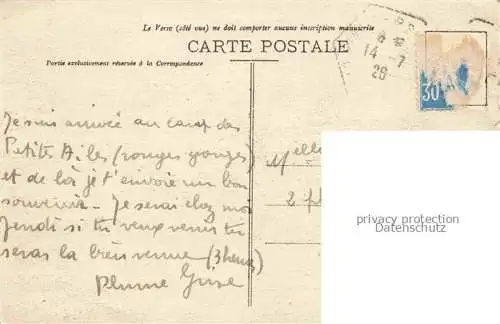 Le Verso (côté vue) ne doit comporter aucune inscription manuscrite
CARTE POSTALE
Partie exclusivement réservée à la Correspondance
14-7
29
30
Je suis arrivée au camp des
Petites Ailes (rouges gorges)
et de là je t'envoie un bon
souvenir. Je serai chez moi
Jeudi si tu veux venir tu
seras la bienvenue (3 heures)
Plume Grise
Melle
2
privacy protection
Datenschutz